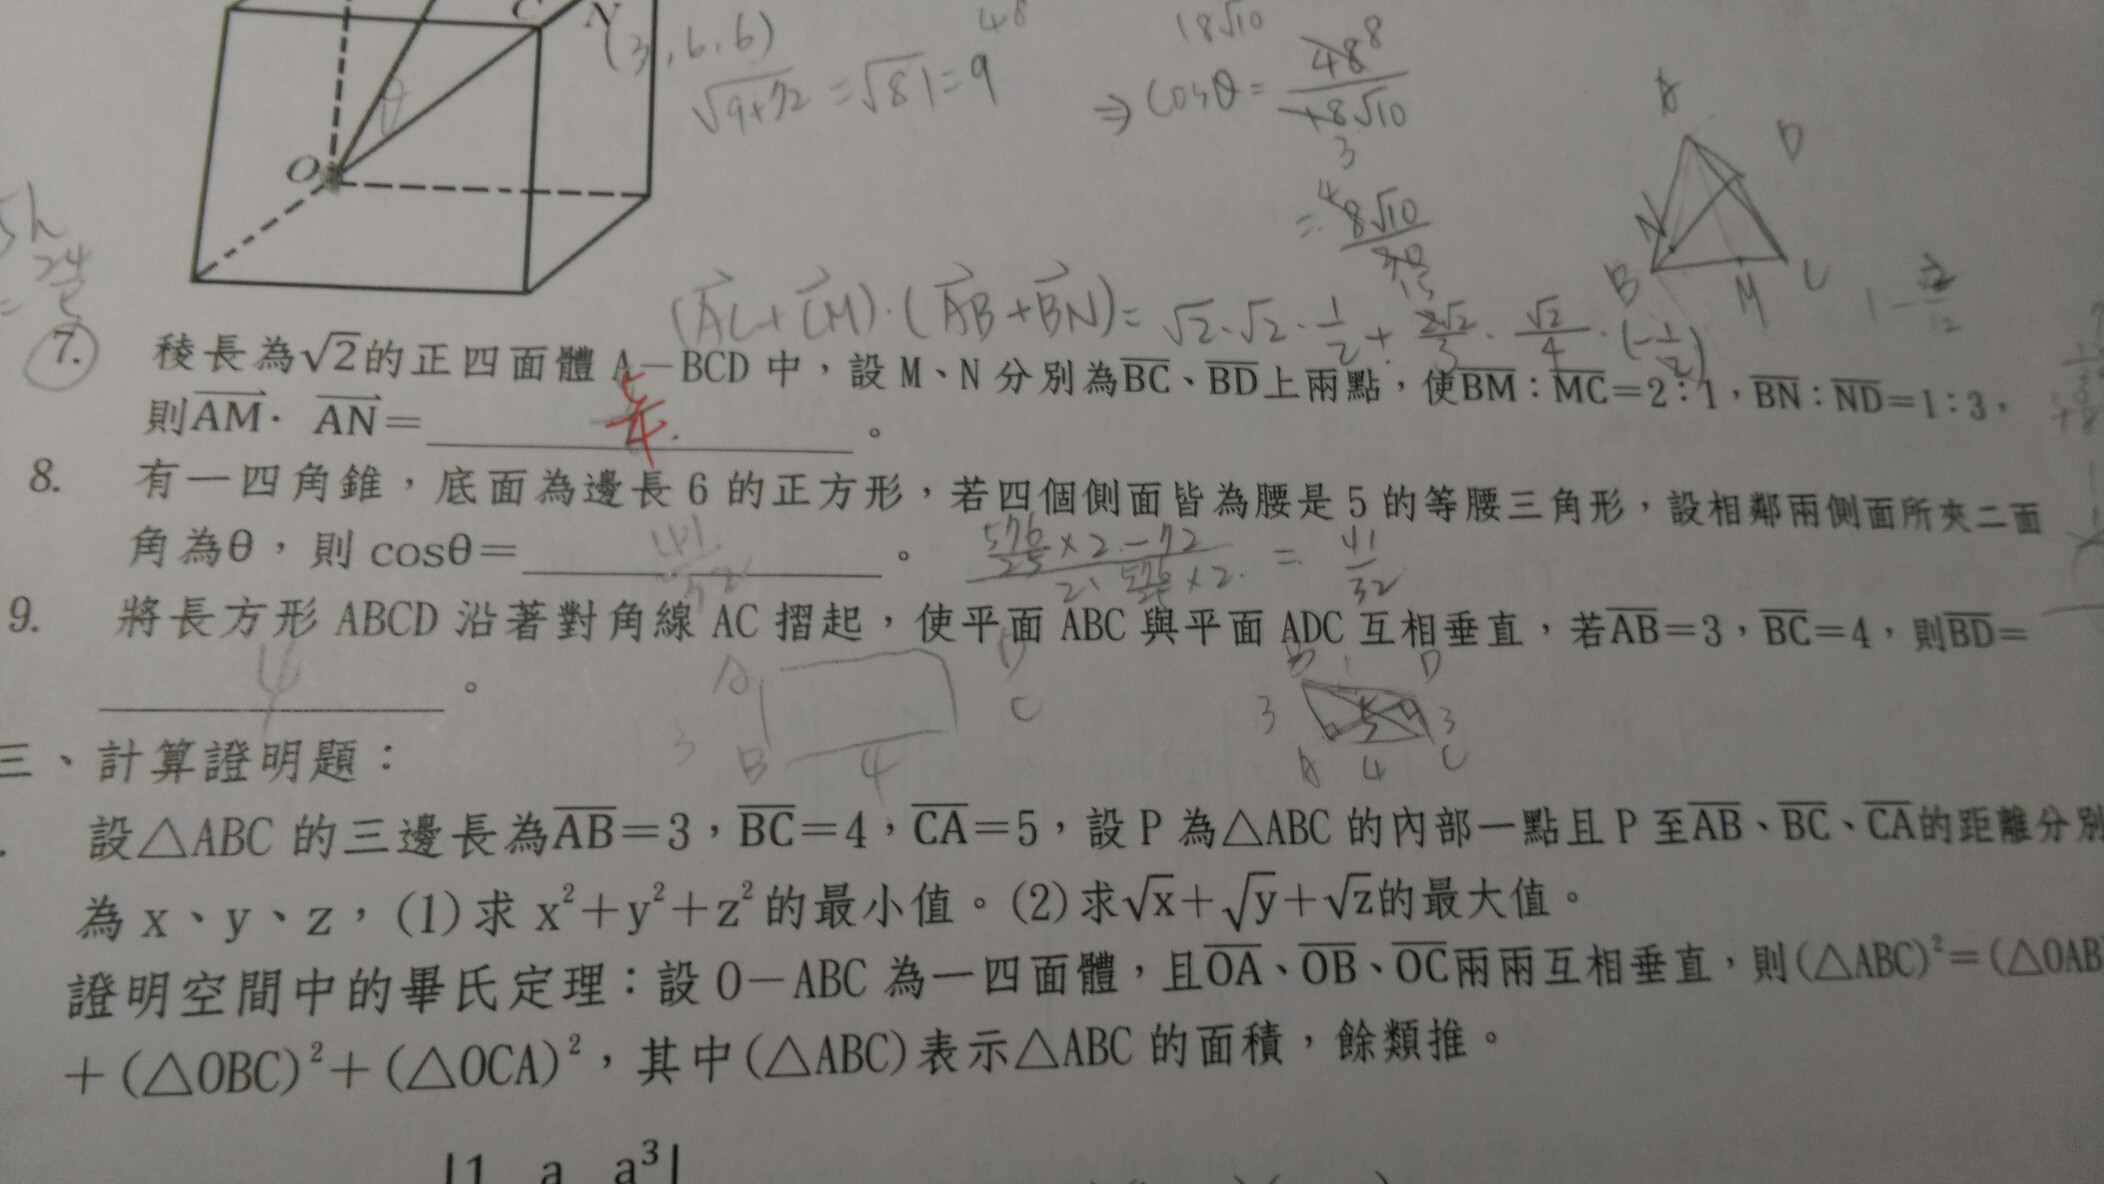 C N
(3,6,6)
√(9+72) =√81=9
48
18√10
⇒ cosθ= 48 8 / 18√10 3
= 4 8√10 / 30 15
O θ
A D N B M C
24/5
(AC+CM)·(AB+BN)= √2·√2·1/2 + 2√2/3 · √2/4 ·(-1/2)
7. 稜長為√2的正四面體 A－BCD 中，設 M、N 分別為BC、BD上兩點，使BM：MC=2：1，BN：ND=1：3，
則AM· AN= 5/4 。
8. 有一四角錐，底面為邊長 6 的正方形，若四個側面皆為腰是 5 的等腰三角形，設相鄰兩側面所夾二面
角為θ，則 cosθ= 。 576/25 ×2-72 / 2·576/25 ×2 =
9. 將長方形 ABCD 沿著對角線 AC 摺起，使平面 ABC 與平面 ADC 互相垂直，若AB=3，BC=4，則BD=
。
A D C B 3 4
B D 3 5 3 A 4 C
三、計算證明題：
設△ABC 的三邊長為AB=3，BC=4，CA=5，設 P 為△ABC 的內部一點且 P 至AB、BC、CA的距離分別
為 x、y、z，(1)求 x²+y²+z²的最小值。(2)求√x+√y+√z的最大值。
證明空間中的畢氏定理：設 O－ABC 為一四面體，且OA、OB、OC兩兩互相垂直，則(△ABC)²=(△OAB
+(△OBC)²+(△OCA)²，其中(△ABC)表示△ABC 的面積，餘類推。
|1 a a³|